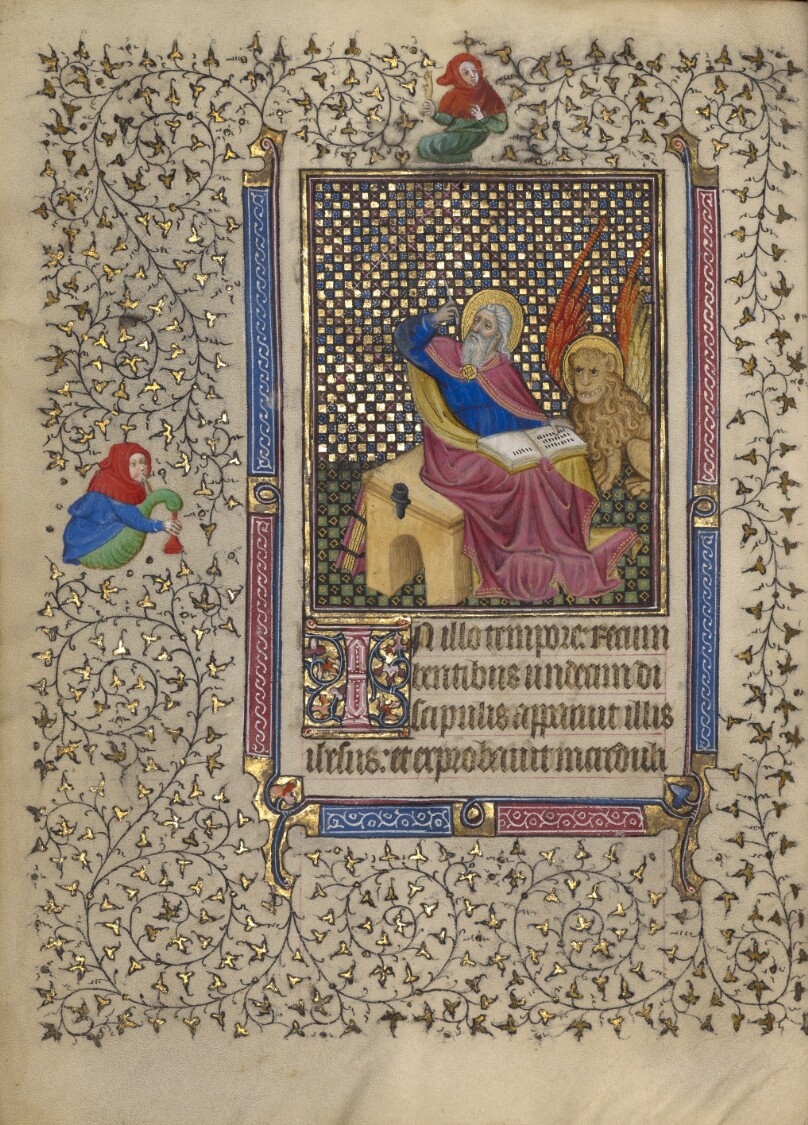 IN illo tempore: recum
bentibus undecim di
scipulis apparuit illis
ihesus: et exprobavit increduli